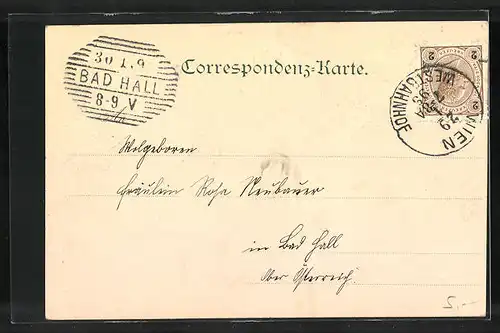 30 1.9
BAD HALL
8-9 V
Correspondenz-Karte.
2 2
WIEN
WESTBAHNHOF
29
Wolgeboren
Fräulein Rosa Neubauer
in Bad Hall
Ober Österreich
5.-